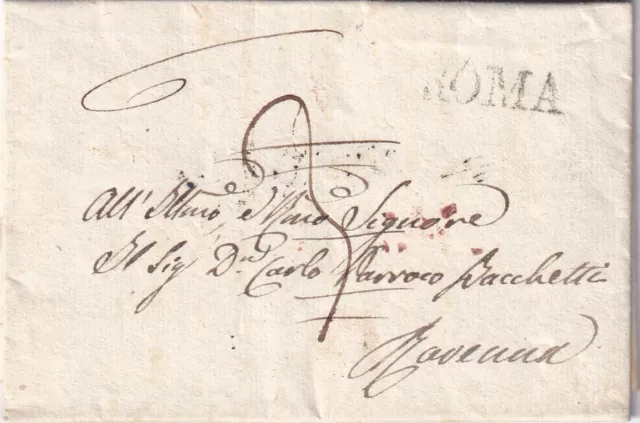 ROMA
All' Illmo, e Rmo Signore
Il Sig. Dn. Carlo Parroco Bacchetti
Ravenna